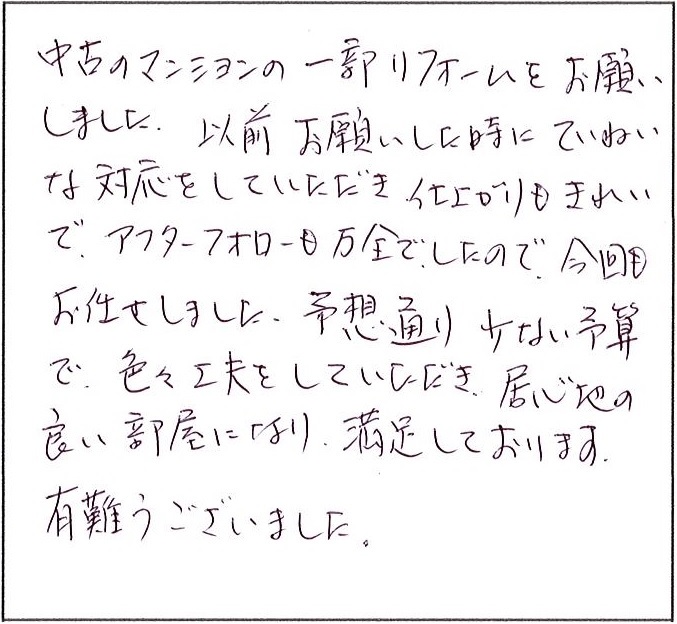 中古のマンションの一部リフォームをお願い
しました. 以前お願いした時にていねい
な対応をしていただき 仕上がりもきれい
で. アフターフォローも万全でしたので. 今回も
お任せしました. 予想通り 少ない予算
で. 色々工夫をしていただき. 居心地の
良い部屋になり. 満足しております.
有難うございました。